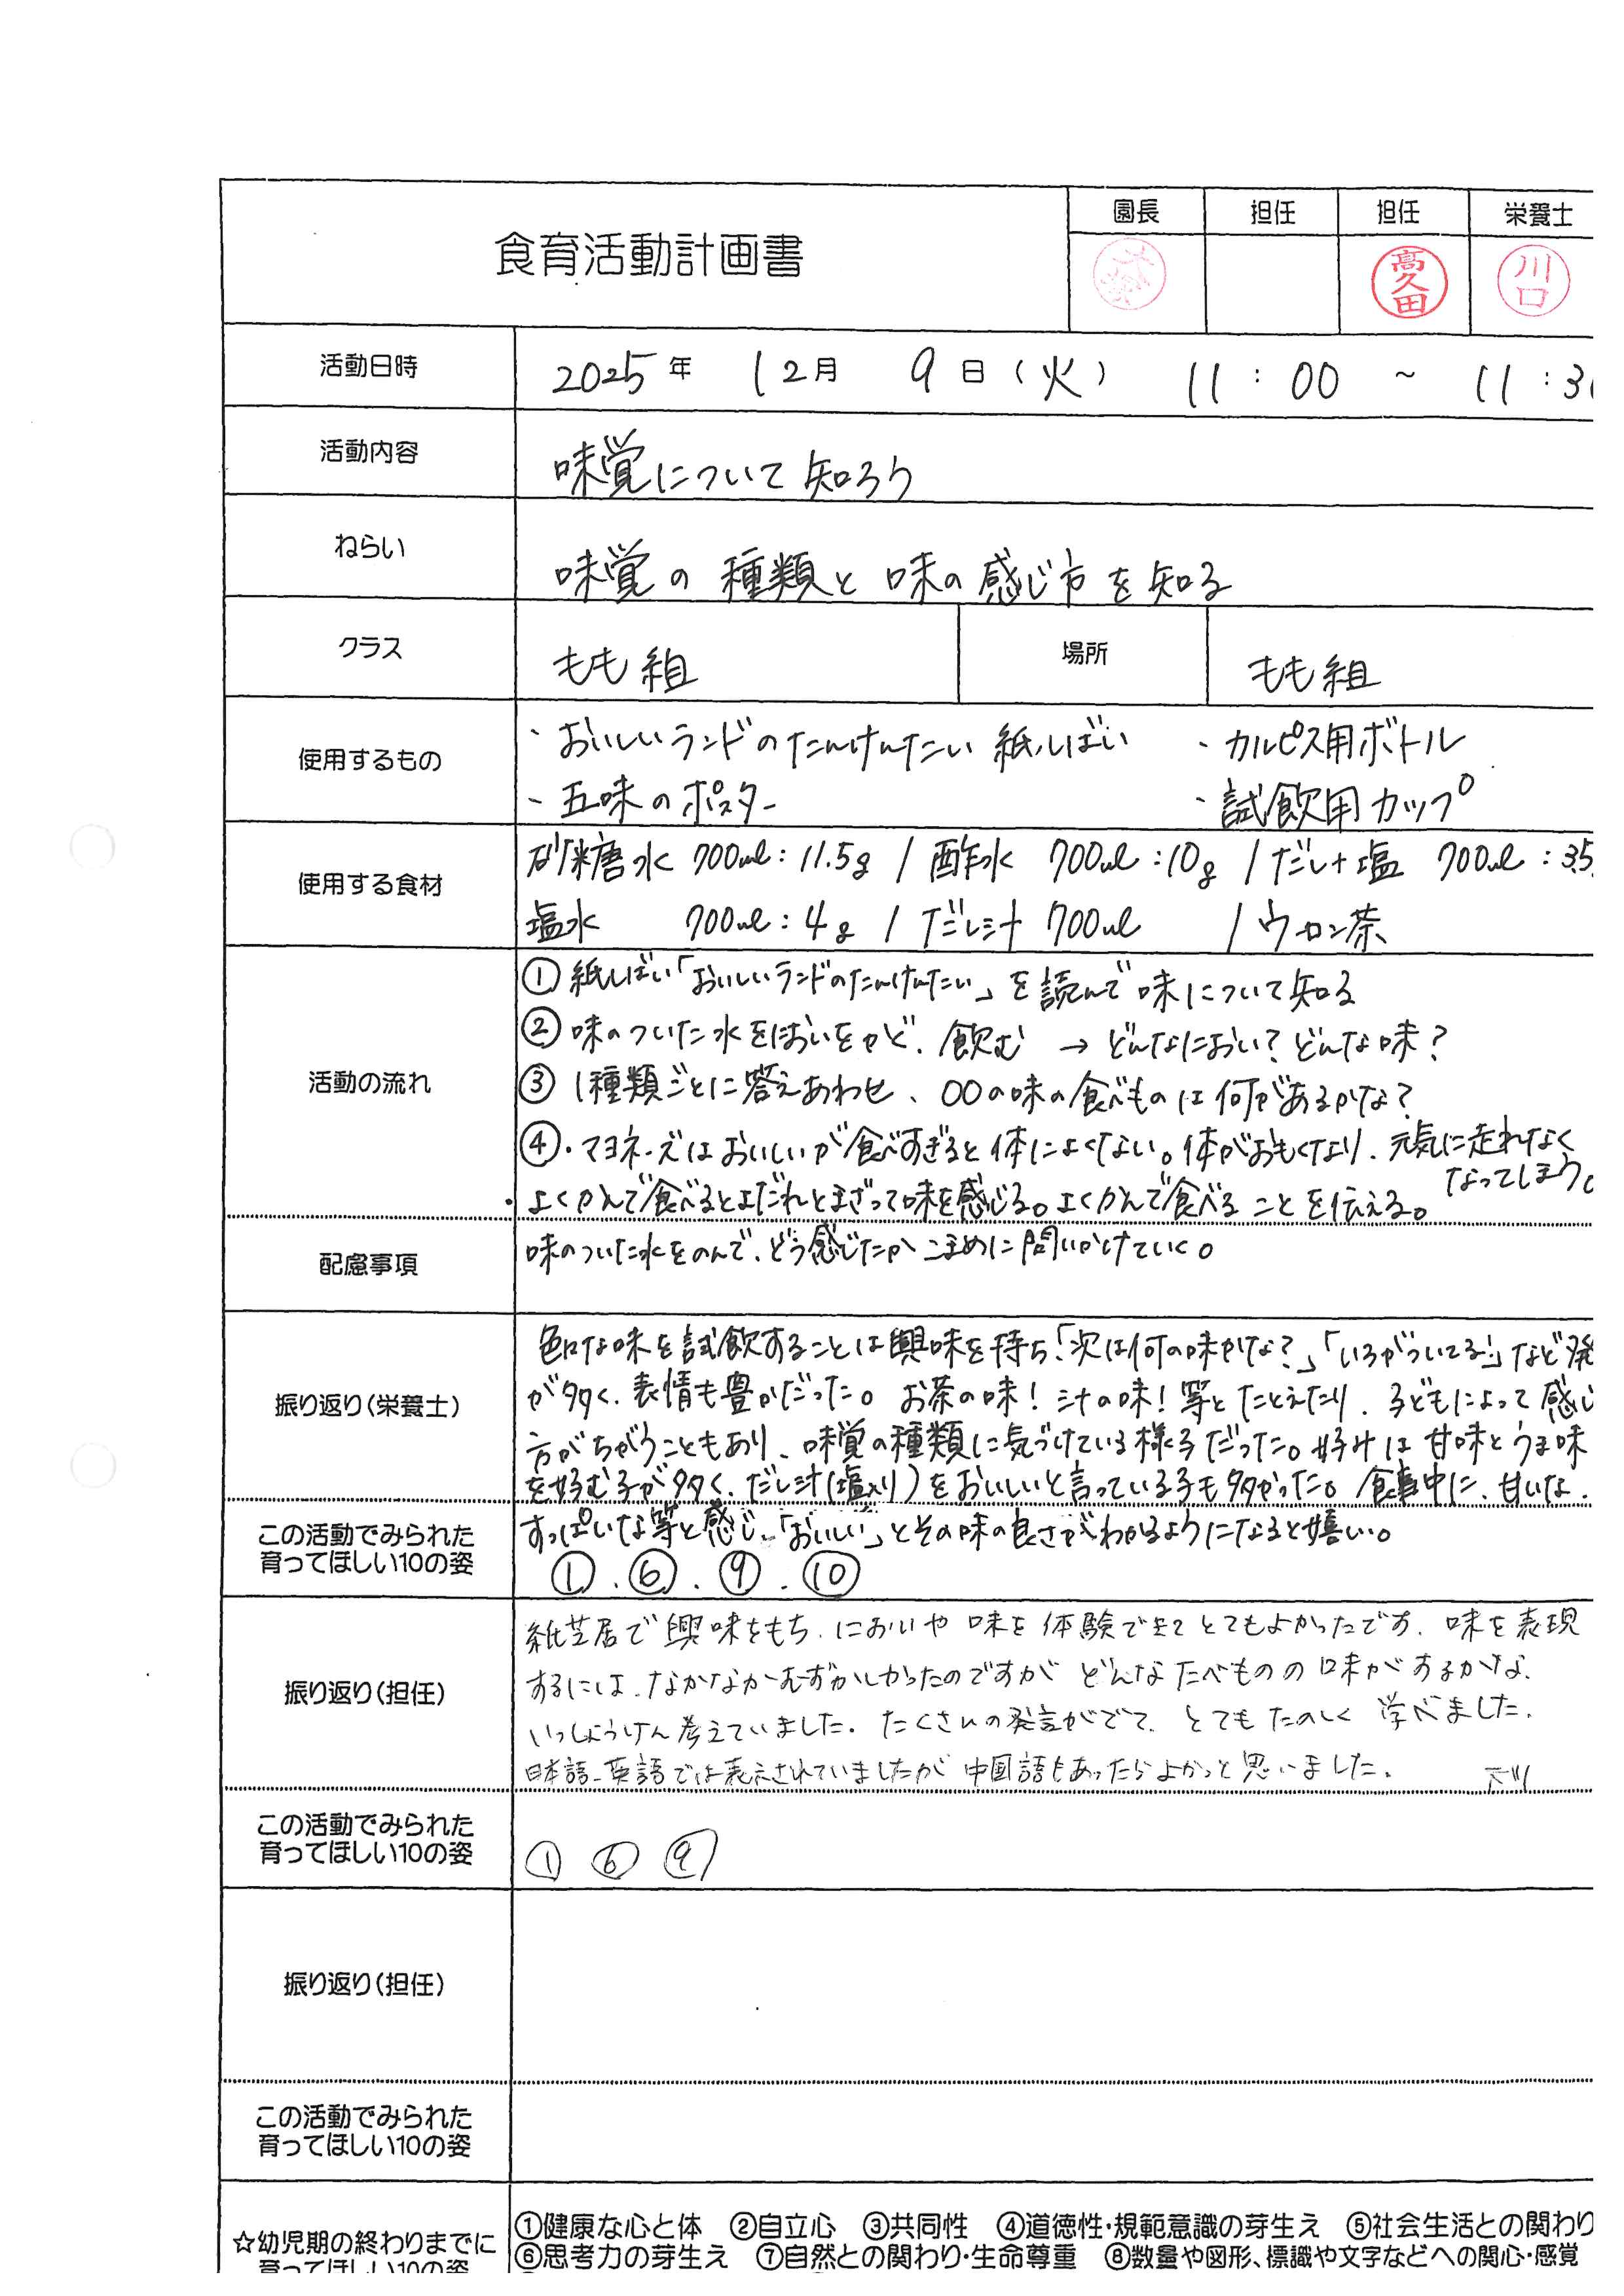 食育活動計画書
園長 担任 担任 栄養士
高久田 川口
活動日時 2025年 12月 9日(火) 11:00 ~ 11:3
活動内容 味覚について知ろう
ねらい 味覚の種類と味の感じ方を知る
クラス もも組 場所 もも組
使用するもの
・おいしいランドのたんけんたい 紙しばい ・カルピス用ボトル
・五味のポスター ・試飲用カップ
使用する食材
砂糖水 700ml:11.5g / 酢水 700ml:10g / だし+塩 700ml:3.5
塩水 700ml:4g / だし汁 700ml / ウーロン茶
活動の流れ
①紙しばい「おいしいランドのたんけんたい」を読んで味について知る
②味のついた水をにおいをかぎ、飲む → どんなにおい?どんな味?
③1種類ごとに答えあわせ、〇〇の味の食べものは何があるかな?
④・マヨネーズはおいしいが食べすぎると体によくない。体がおもくなり、元気に走れなく
なってしまう。
・よくかんで食べるとよだれとまざって味を感じる。よくかんで食べることを伝える。
配慮事項
味のついた水をのんで、どう感じたかこまめに問いかけていく。
振り返り(栄養士)
色々な味を試飲することは興味を持ち、「次は何の味かな?」「いろがついてる!」など発
が多く、表情も豊かだった。お茶の味!汁の味!等とたとえたり、子どもによって感じ
方がちがうこともあり、味覚の種類に気づけている様子だった。好みは甘味とうま味
を好む子が多く、だし汁(塩入り)をおいしいと言っている子も多かった。食事中に、甘いな、
すっぱいな等と感じ、「おいしい」とその味の良さがわかるようになると嬉しい。
この活動でみられた
育ってほしい10の姿
①.⑥.⑨.⑩
振り返り(担任)
紙芝居で興味をもち、においや味を体験できてとてもよかったです。味を表現
するには、なかなかむずかしかったのですがどんなたべものの味がするかな、
いっしょうけん考えていました。たくさんの発言がでて、とてもたのしく学べました。
日本語、英語では表示されていましたが中国語もあったらよかっと思いました。
この活動でみられた
育ってほしい10の姿
① ⑥ ⑨
振り返り(担任)
この活動でみられた
育ってほしい10の姿
☆幼児期の終わりまでに
育ってほしい10の姿
①健康な心と体 ②自立心 ③共同性 ④道徳性・規範意識の芽生え ⑤社会生活との関わり
⑥思考力の芽生え ⑦自然との関わり・生命尊重 ⑧数量や図形、標識や文字などへの関心・感覚